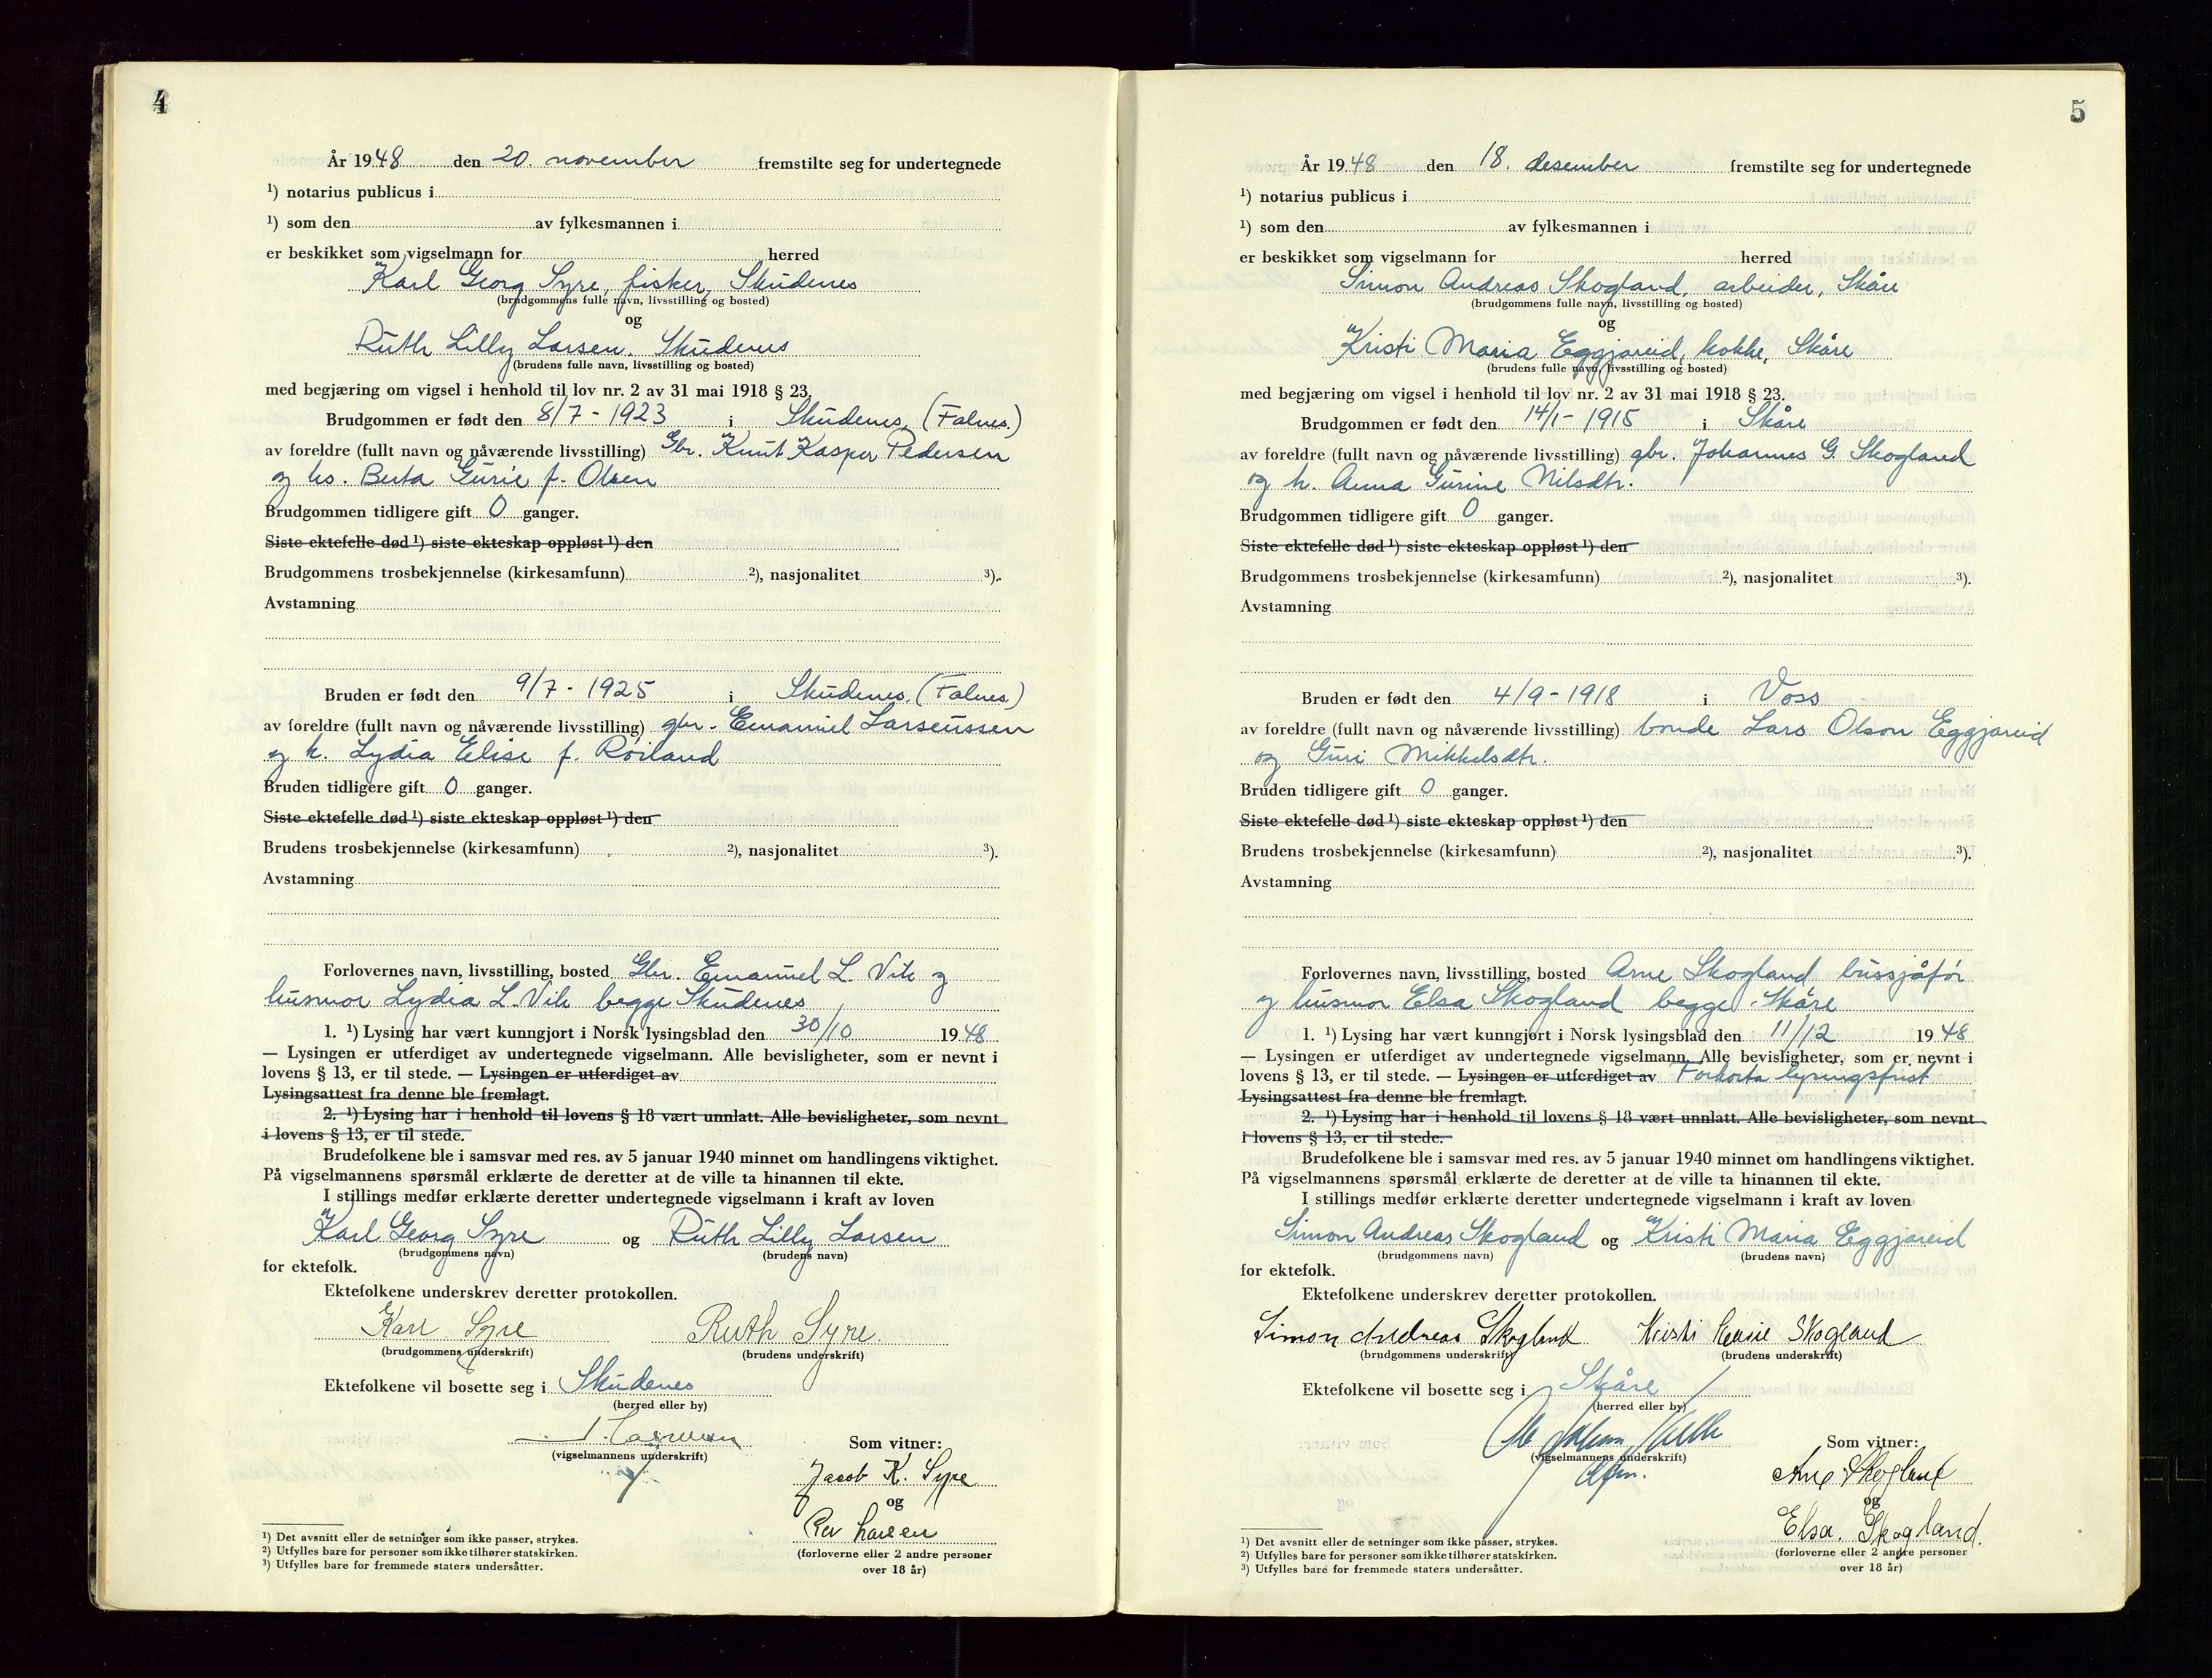 4
År 1948 den 20. november fremstilte seg for undertegnede
¹) notarius publicus i
¹) som den av fylkesmannen i
er beskikket som vigselmann for herred
Karl Georg Syre, fisker, Skudenes
(brudgommens fulle navn, livsstilling og bosted)
og
Ruth Lilly Larsen. Skudenes
(brudens fulle navn, livsstilling og bosted)
med begjæring om vigsel i henhold til lov nr. 2 av 31 mai 1918 § 23.
Brudgommen er født den 8/7 - 1923 i Skudenes. (Falnes.)
av foreldre (fullt navn og nåværende livsstilling) Gbr. Knut Kasper Pedersen
og hs. Berta Gurie f. Olsen
Brudgommen tidligere gift 0 ganger.
Siste ektefelle død ¹) siste ekteskap oppløst ¹) den
Brudgommens trosbekjennelse (kirkesamfunn) ²), nasjonalitet ³).
Avstamning
Bruden er født den 9/7 - 1925 i Skudenes. (Falnes)
av foreldre (fullt navn og nåværende livsstilling) gbr. Emanuel Larsenssen
og h. Lydia Elise f. Roiland
Bruden tidligere gift 0 ganger.
Siste ektefelle død ¹) siste ekteskap oppløst ¹) den
Brudens trosbekjennelse (kirkesamfunn) ²), nasjonalitet ³).
Avstamning
Forlovernes navn, livsstilling, bosted Gbr. Emanuel L. Vik og
husmor Lydia L. Vik begge Skudenes
1. ¹) Lysing har vært kunngjort i Norsk lysingsblad den 30/10 1948
— Lysingen er utferdiget av undertegnede vigselmann. Alle bevisligheter, som er nevnt i
lovens § 13, er til stede. — Lysingen er utferdiget av
Lysingsattest fra denne ble fremlagt.
2. ¹) Lysing har i henhold til lovens § 18 vært unnlatt. Alle bevisligheter, som nevnt
i lovens § 13, er til stede.
Brudefolkene ble i samsvar med res. av 5 januar 1940 minnet om handlingens viktighet.
På vigselmannens spørsmål erklærte de deretter at de ville ta hinannen til ekte.
I stillings medfør erklærte deretter undertegnede vigselmann i kraft av loven
Karl Georg Syre og Ruth Lilly Larsen
(brudgommens navn) (brudens navn)
for ektefolk.
Ektefolkene underskrev deretter protokollen.
Karl Syre Ruth Syre
(brudgommens underskrift) (brudens underskrift)
Ektefolkene vil bosette seg i Skudenes
(herred eller by)
(vigselmannens underskrift)
Som vitner:
Jacob K. Syre
og
Larsen
(forloverne eller 2 andre personer
over 18 år)
¹) Det avsnitt eller de setninger som ikke passer, strykes.
²) Utfylles bare for personer som ikke tilhører statskirken.
³) Utfylles bare for fremmede staters undersåtter.
5
År 1948 den 18. desember fremstilte seg for undertegnede
¹) notarius publicus i
¹) som den av fylkesmannen i
er beskikket som vigselmann for herred
Simon Andreas Skogland, arbeider, Skåre
(brudgommens fulle navn, livsstilling og bosted)
og
Kristi Maria Eggjareid, kokke, Skåre
(brudens fulle navn, livsstilling og bosted)
med begjæring om vigsel i henhold til lov nr. 2 av 31 mai 1918 § 23.
Brudgommen er født den 14/1 - 1915 i Skåre
av foreldre (fullt navn og nåværende livsstilling) gbr. Johannes G. Skogland
og h. Anna Gurine Nilsdtr.
Brudgommen tidligere gift 0 ganger.
Siste ektefelle død ¹) siste ekteskap oppløst ¹) den
Brudgommens trosbekjennelse (kirkesamfunn) ²), nasjonalitet ³).
Avstamning
Bruden er født den 4/9 - 1918 i Voss
av foreldre (fullt navn og nåværende livsstilling) bonde Lars Olson Eggjareid
og Guri Mikkelsdtr.
Bruden tidligere gift 0 ganger.
Siste ektefelle død ¹) siste ekteskap oppløst ¹) den
Brudens trosbekjennelse (kirkesamfunn) ²), nasjonalitet ³).
Avstamning
Forlovernes navn, livsstilling, bosted Arne Skogland bussjåfør
og husmor Elsa Skogland begge Skåre
1. ¹) Lysing har vært kunngjort i Norsk lysingsblad den 11/12 1948
— Lysingen er utferdiget av undertegnede vigselmann. Alle bevisligheter, som er nevnt i
lovens § 13, er til stede. — Lysingen er utferdiget av Forkorta lysingsfrist
Lysingsattest fra denne ble fremlagt.
2. ¹) Lysing har i henhold til lovens § 18 vært unnlatt. Alle bevisligheter, som nevnt
i lovens § 13, er til stede.
Brudefolkene ble i samsvar med res. av 5 januar 1940 minnet om handlingens viktighet.
På vigselmannens spørsmål erklærte de deretter at de ville ta hinannen til ekte.
I stillings medfør erklærte deretter undertegnede vigselmann i kraft av loven
Simon Andreas Skogland og Kristi Maria Eggjareid
(brudgommens navn) (brudens navn)
for ektefolk.
Ektefolkene underskrev deretter protokollen.
Simon Andreas Skogland Kristi Marie Skogland
(brudgommens underskrift) (brudens underskrift)
Ektefolkene vil bosette seg i Skåre
(herred eller by)
(vigselmannens underskrift)
Som vitner:
Arne Skogland
og
Elsa. Skogland.
(forloverne eller 2 andre personer
over 18 år)
¹) Det avsnitt eller de setninger som ikke passer, strykes.
²) Utfylles bare for personer som ikke tilhører statskirken.
³) Utfylles bare for fremmede staters undersåtter.